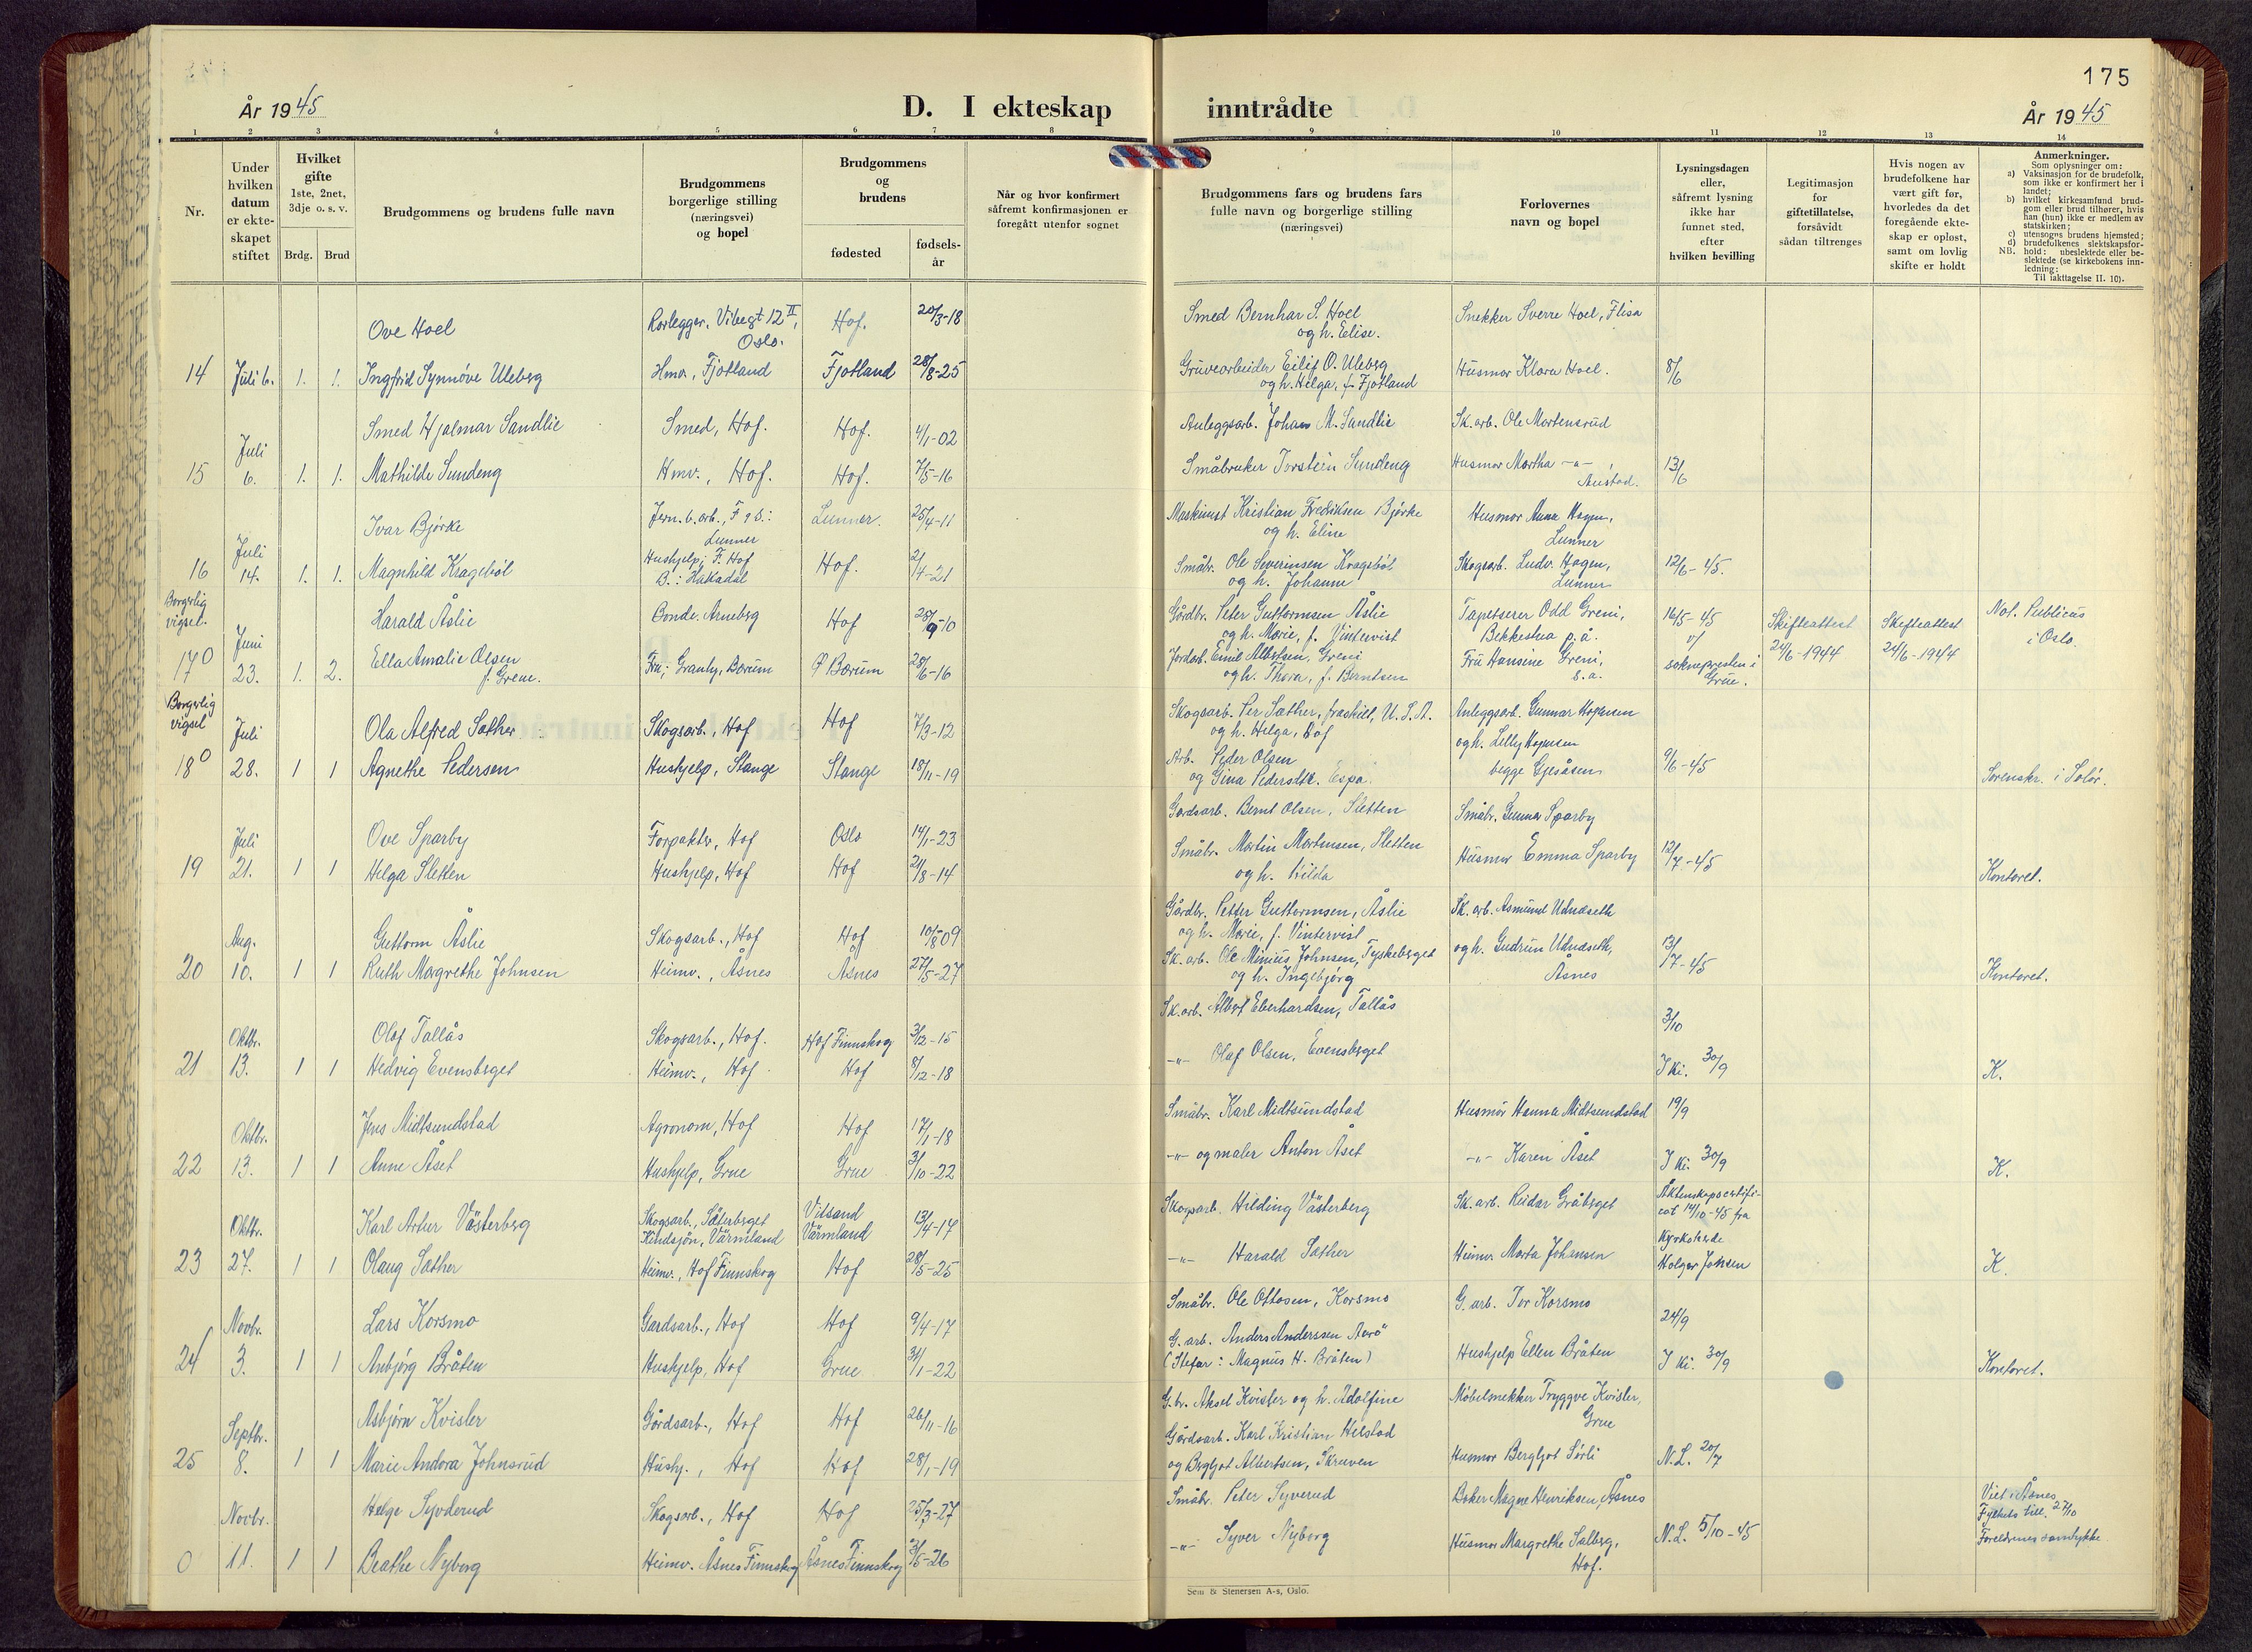 175
År 1945
D. I ekteskap
inntrådte
År 1945
1 2 3 4 5 6 7 8 9 10 11 12 13 14
Nr.
Under
hvilken
datum
er ekte-
skapet
stiftet
Hvilket
gifte
1ste, 2net,
3dje o. s. v.
Brdg. Brud
Brudgommens og brudens fulle navn
Brudgommens
borgerlige stilling
(næringsvei)
og bopel
Brudgommens
og
brudens
fødested
fødsels-
år
Når og hvor konfirmert
såfremt konfirmasjonen er
foregått utenfor sognet
Brudgommens fars og brudens fars
fulle navn og borgerlige stilling
(næringsvei)
Forlovernes
navn og bopel
Lysningsdagen
eller,
såfremt lysning
ikke har
funnet sted,
efter
hvilken bevilling
Legitimasjon
for
giftetillatelse,
forsåvidt
sådan tiltrenges
Hvis nogen av
brudefolkene har
vært gift før,
hvorledes da det
foregående ekte-
skap er opløst,
samt om lovlig
skifte er holdt
Anmerkninger.
Som oplysninger om:
a) Vaksinasjon for de brudefolk,
som ikke er konfirmert her i
landet;
b) hvilket kirkesamfund brud-
gom eller brud tilhører, hvis
han (hun) ikke er medlem av
statskirken;
c) utensogns brudens hjemsted;
d) brudefolkenes slektskapsfor-
hold: ubeslektede eller be-
slektede (se kirkebokens inn-
ledning:
NB.
Til iakttagelse II. 10).
Ove Hoel Rørlegger, Vibegt 12 II, Oslo. Hof. 20/3-18 Smed Bernhar S. Hoel og h. Elise. Snekker Sverre Hoel, Flisa
14 Juli 6. 1. 1. Ingfrid Synnøve Uleberg Hmv., Fjotland Fjotland 28/8-25 Gruvearbeider Eilif O. Uleberg og h. Helga, f. Fjotland Husmor Klara Hoel. 8/6
Smed Hjalmar Sandlie Smed, Hof. Hof. 4/1-02 Anleggsarb. Johan M. Sandlie Sk.arb. Ole Mortensrud
15 Juli 6. 1. 1. Mathilde Sundeng Hmv., Hof. Hof. 7/5-16 Småbruker Torstein Sundeng Husmor Martha -"-, Austad. 13/6
Ivar Bjørke Jern.b.arb., F og B.: Lunner Lunner. 25/4-11 Maskinist Kristian Fredriksen Bjørke og h. Eline Husmor Anna Hagen, Lunner
16 Juli 14. 1. 1. Magnhild Kragebøl Hushjelp; F. Hof B.: Hakadal Hof. 2/4-21 Småbr. Ole Severinsen Kragsbøl og h. Johanne Skogsarb. Ludv. Hagen, Lunner 12/6-45.
Borgerlig vigsel. Harald Åslie Bonde. Arneberg Hof 25/9-10 Gårdbr. Peter Guttormsen Åslie og h. Marie, f. Vintervist Tapetserer Odd Greni, Bekkestua p.å. 16/5-45 v/ sokneprestein i Grue. Skifteattest 24/6-1944 Skifteattest 24/6-1944 Not. Publicus i Oslo.
17 0 Juni 23. 1. 2. Ella Amalie Olsen f. Grene. Fru; Granly, Bærum Ø Bærum 28/6-16 Jordarb. Emil Albertsen, Greni og h. Thora, f. Berntsen Fru Hansine Greni, s.a.
Borgerlig vigsel Ola Alfred Sæther Skogsarb., Hof Hof 7/3-12 Skogsarb. Per Sæther, fraskilt, U.S.A. og h. Helga, Hof Anleggsarb. Gunnar Hopersen
18 0 Juli 28. 1 1 Agnethe Pedersen Hushjelp, Stange Stange 18/11-19 Arb. Peder Olsen og Gina Pedersdtr. Espa. og h. Lilly Hopersen begge Gjesåsen 9/6-45 Sorenskr. i Solør.
Ove Sparby Forpakter, Hof Oslo 14/1-23 Gardsarb. Bernt Olsen, Sletten Småbr. Gunnar Sparby
19 Juli 21. 1 1 Helga Sletten Hushjelp, Hof Hof 21/8-14 Småbr. Martin Mortensen, Sletten og h. Hilda Husmor Emma Sparby 12/7-45 Kontoret.
Guttorm Åslie Skogsarb., Hof Hof 10/8 09 Gårdbr. Petter Guttormsen, Åslie og h. Marie, f. Vintervist Sk.arb. Asmund Udnæseth
20 Aug. 10. 1 1 Ruth Margrethe Johnsen Heimv., Åsnes Åsnes 27/5-27 Sk.arb. Ole Minius Johnsen, Tyskeberget og h. Ingebjørg og h. Gudrun Udnæseth, Åsnes 13/7-45 Kontoret.
Olaf Tallås Skogsarb., Hof. Hof Finnskog 3/12-15 Sk.arb. Albert Eberhardsen, Tallås 3/10
21 Oktbr. 13. 1 1 Hedvig Evensberget Heimv., Hof Hof 8/12-18 -"- Olaf Olsen, Evensberget I Ki. 30/9 K.
Jens Midtsundstad Agronom, Hof Hof 17/1-18 Småbr. Karl Midtsundstad Husmor Hanna Midtsundstad 19/9
22 Oktbr. 13. 1 1 Anne Åset Hushjelp, Grue Grue 3/10-22 -"- og maler Anton Åset -"- Karen Åset I Ki. 30/9 K.
Karl Artur Västerberg Skogsarb., Säterberget Kindsjön, Värmland Vitsand Värmland 13/4-17 Skogsarb. Hilding Västerberg Sk.arb. Reidar Gråberget Äktenskapscertifi- cat 14/10-45 fra
23 Oktbr. 27. 1 1 Olaug Sæther Heimv., Hof Finnskog Hof 28/5-25 -"- Harald Sæther Heimv. Marta Johansen Kyrkoherde Holger Johsen K.
Lars Korsmo Gardsarb., Hof Hof 9/4-17 Småbr. Ole Ottosen, Korsmo G.arb. Tor Korsmo 24/9
24 Novbr. 3. 1 1 Anbjørg Bråten Hushjelp, Hof Grue 31/1-22 G.arb. Anders Anderssen (Stefar: Magnus H. Bråten) Hushjelp Ellen Bråten I Ki. 30/9 Kontoret.
Asbjørn Kvisler Gårdsarb., Hof Hof 26/11-16 G.br. Aksel Kvisler og h. Adolfine Møbelsnekker Tryggve Kvisler, Grue
25 Septbr. 8. 1 1 Marie Andora Johnsrud Hushj., Hof Hof 28/1-19 Gårdsarb. Karl Kristian Helstad og Bergljot Albertsen, Skruven Husmor Bergljot Sørli N.L. 20/7
Helge Syverud Skogsarb., Hof Hof 25/3-27 Småbr. Peter Syverud Baker Magne Henriksen, Åsnes Viet i Åsnes
0 Novbr. 11. 1 1 Beathe Nyberg Heimv. Åsnes Finnskog Åsnes Finnskog 3/5-26 -"- Syver Nyberg Husmor Margrethe Salberg, Hof. N.L. 5/10-45 Fylkets till. 27/10 Foreldrenes samtykke
Sem & Stenersen A-s, Oslo.